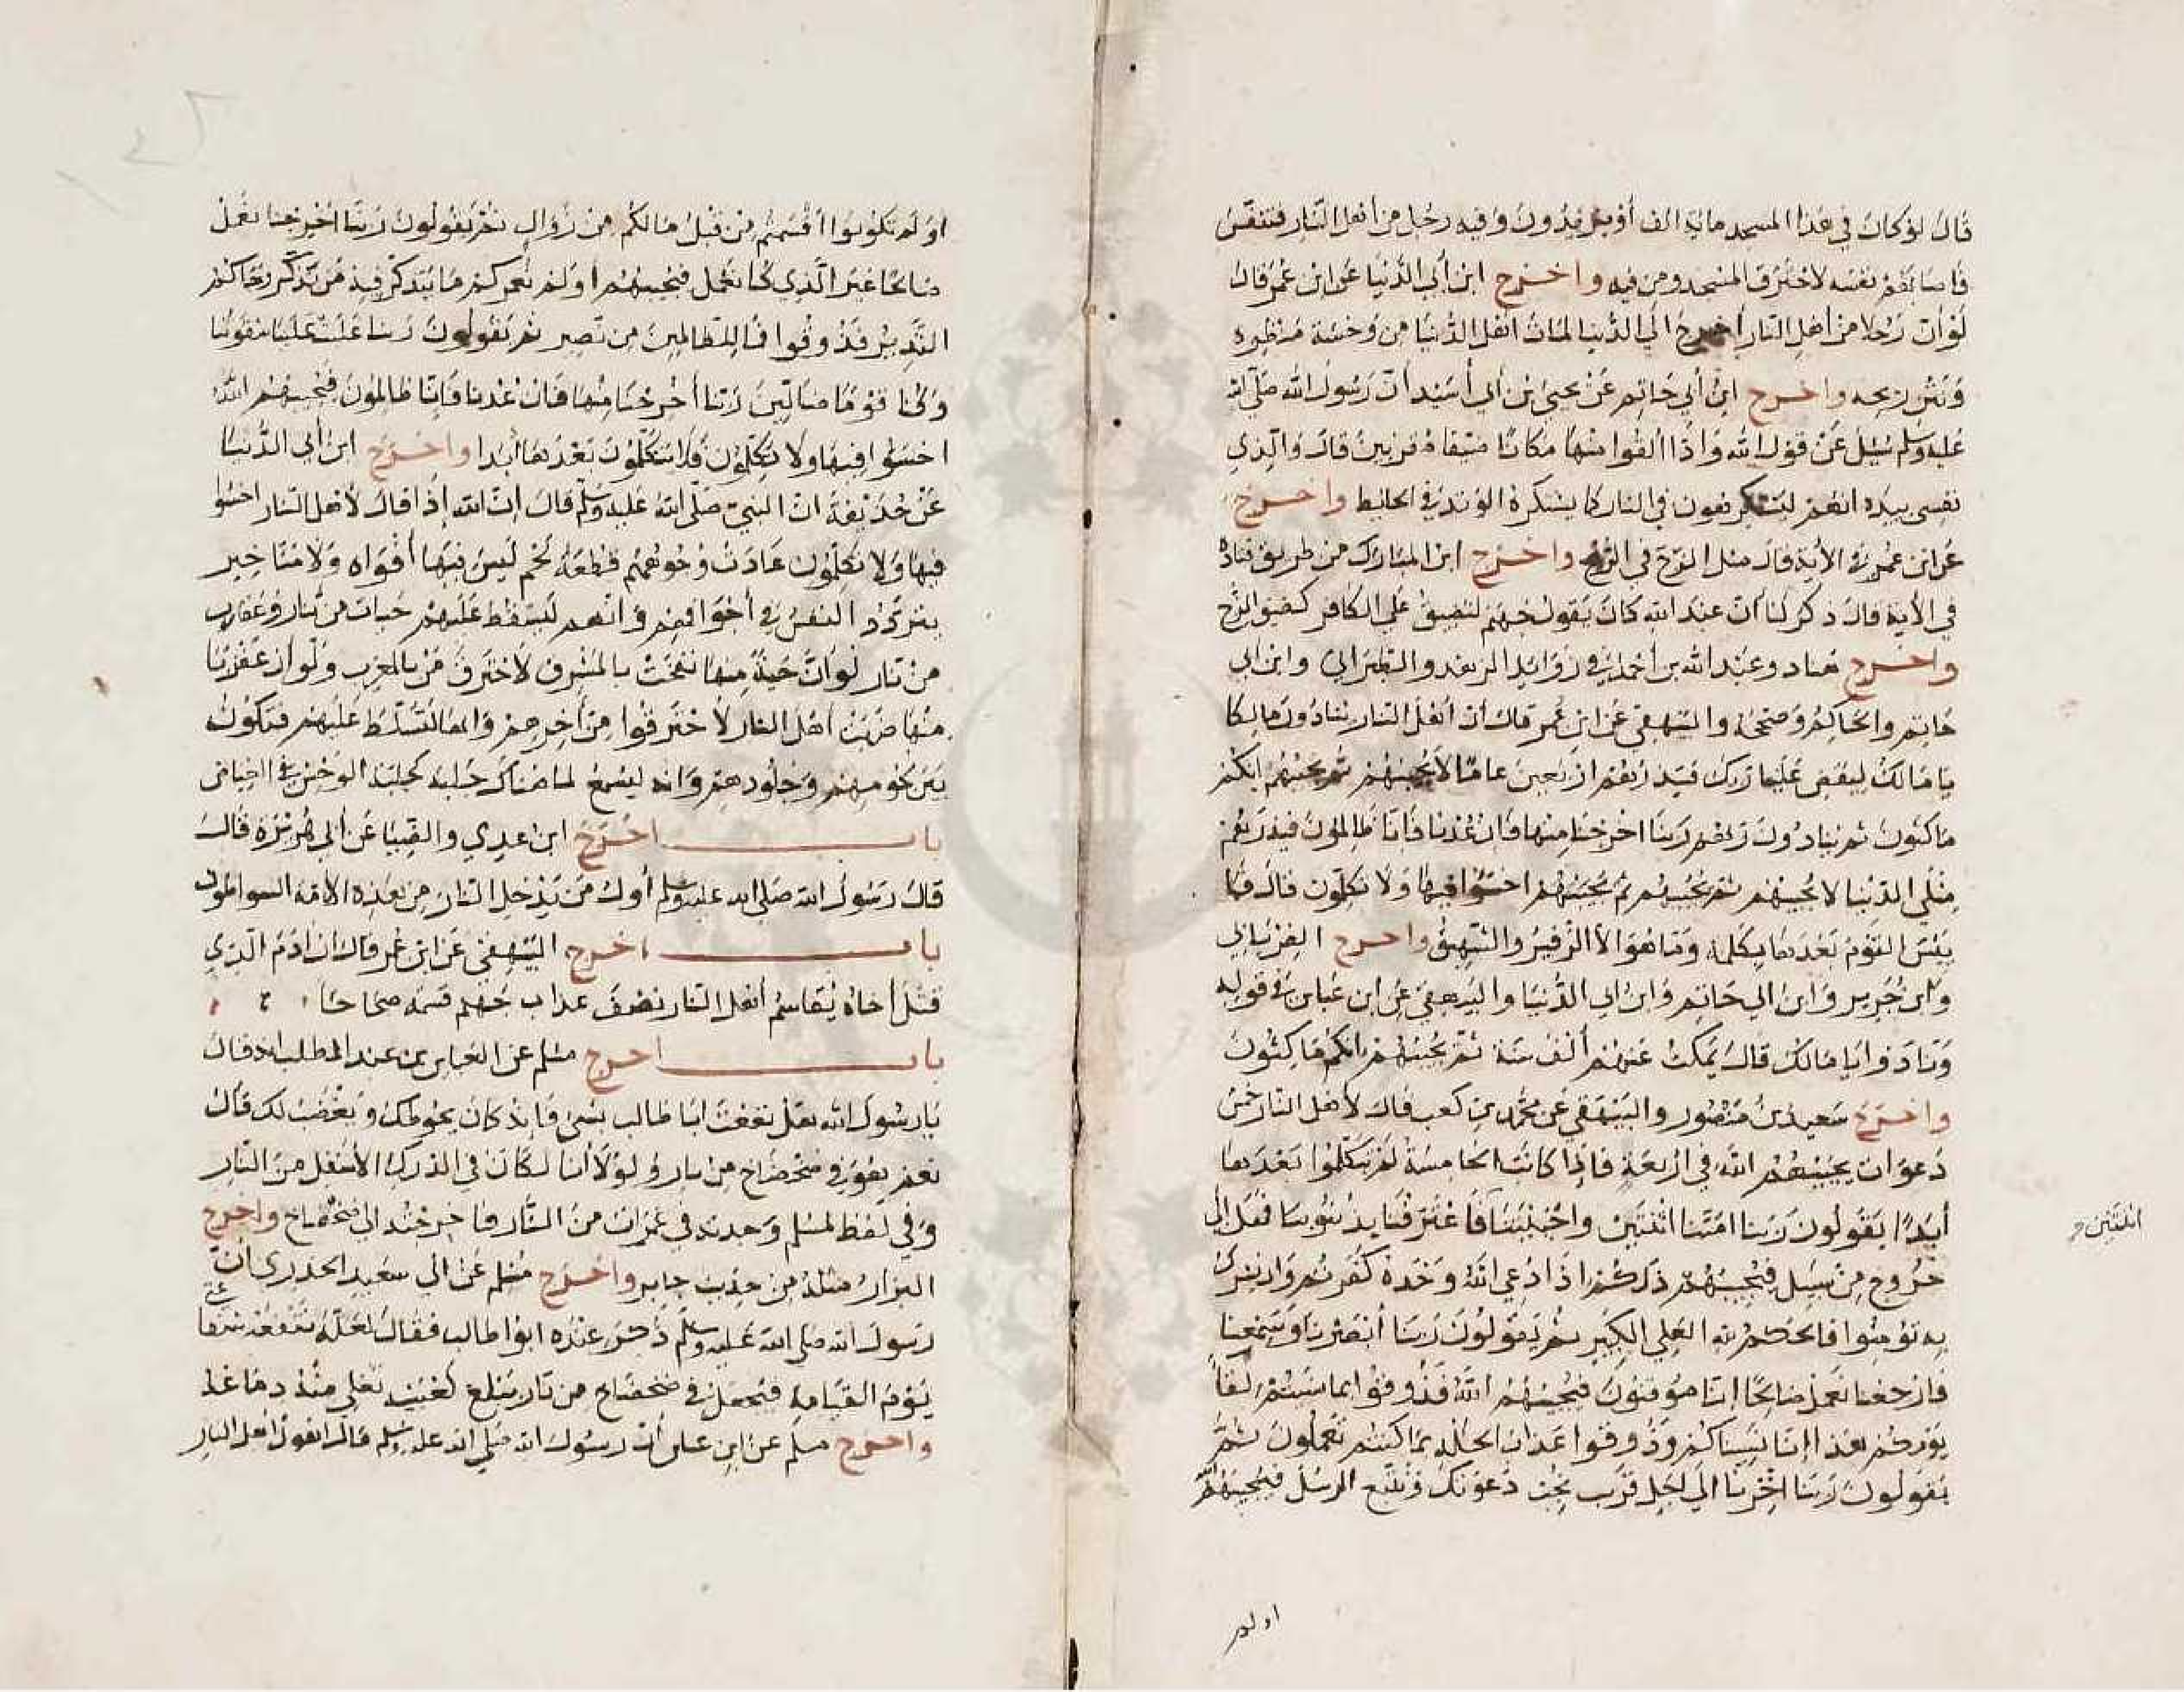 قال لو كان في هذا المسجد ماية الف أو يزيدون وفيه رجل من أهل النار فتنفس
فاصابهم نفسه لاحترق المسجد ومن فيه واخرج ابن أبي الدنيا عن ابن عمر قال
لو أن رجلا من أهل النار أخرج الي الدنيا لمات اهل الدنيا من وحشة منظره
ونتن ريحه واخرج ابن أبي حاتم عن يحيى بن أبي أسيد أن رسول الله صلى الله
عليه وسلم سئل عن قول الله واذا القوا منها مكانا ضيقا مقرنين قال والذي
نفسي بيده انهم ليستكرهون في النار كما يستكره الوتد في الحايط واخرج
عن ابن عمر في الأية قال مثل الزج في الرمح واخرج ابن المبارك من طريق قتادة
في الأية قال ذكر لنا أن عبد الله كان يقول جهنم لتضيق على الكافر كضيق الزج
واخرج هناد وعبد الله بن احمد في زوايد الزهد والطبراني وابن ابي
حاتم والحاكم وصححه والبيهقي عن ابن عمر قال ان أهل النار ينادون مالكا
يا مالك ليقض علينا ربك فيذرهم اربعين عاما لا يجيبهم ثم يجيبهم انكم
ماكثون ثم ينادون ربهم ربنا اخرجنا منها فان عدنا فانا ظالمون فيذرهم
مثلي الدنيا لا يجيبهم ثم يجيبهم ثم يجيبهم اخسؤا فيها ولا تكلمون قال فما
يئس القوم بعدها بكلمة وما هوا الا الزفير والشهيق واخرج الفريابي
وابن جرير وابن ابي حاتم وابن ابي الدنيا والبيهقي عن ابن عباس في قوله
ونادوا يا مالك قال يمكث عنهم ألف سنة ثم يجيبهم انكم ماكثون
واخرج سعيد بن منصور والبيهقي عن محمد بن كعب قال لأهل النار خمس
دعوات يجيبهم الله في اربعة فاذا كانت الخامسة لم يتكلموا بعدها
أبدا يقولون ربنا امتنا اثنتين واحييتنا فاعترفنا بذنوبنا فهل إلى
اثنتين و
خروج من سبيل فيجيبهم ذلكم اذا دعي الله وحده كفرتم وان يشرك
به تؤمنوا فالحكم لله العلي الكبير ثم يقولون ربنا أبصرنا وسمعنا
فارجعنا نعمل صالحا انا موقنون فيجيبهم الله فذوقوا بما نسيتم لقا
يومكم هذا إنا نسيناكم وذوقوا عذاب الخلد بما كنتم تعملون ثم
يقولون ربنا اخرنا الى اجل قريب نجب دعوتك ونتبع الرسل فيجيبهم الله
اولم
اولم تكونوا أقسمتم من قبل مالكم من زوال ثم يقولون ربنا اخرجنا نعمل
صالحا غير الذي كنا نعمل فيجيبهم اولم نعمركم ما يتذكر فيه من تذكر وجاكم
النذير فذوقوا فما للظالمين من نصير ثم يقولون ربنا غلبت علينا شقوتنا
وكنا قوما ضالين ربنا أخرجنا منها فان عدنا فانا ظالمون فيجيبهم الله
اخسؤا فيها ولا تكلمون فلا يتكلمون بعدها أبدا واخرج ابن أبي الدنيا
عن حذيفة ان النبي صلى الله عليه وسلم قال ان الله إذا قال لأهل النار اخسئوا
فيها ولا تكلمون عادت وجوههم قطعة لحم ليس فيها أفواه ولا مناخير
يتردد النفس في أجوافهم وانهم لتسقط عليهم حيات من نار وعقارب
من نار لو أن حية منها نفخت بالمشرق لاحترق من بالمغرب ولو أن عقربا
منها ضربت اهل النار لاحترقوا من أخرهم وانها لتسلط عليهم فتكون
بين لحومهم وجلودهم وانه ليسمع لها هناك جلبة كجلبة الوحش في الغياض
باب اخرج ابن عدي والضيا عن أبي هريرة قال
قال رسول الله صلى الله عليه وسلم أول من يدخل النار من هذه الامة السواطون
باب اخرج البيهقي عن ابن عمر قال ان ادم الذي
قتل أخاه يقاسم أهل النار نصف عذاب جهنم قسمة صحاحا
باب اخرج مسلم عن العباس بن عبد المطلب انه قال
يا رسول الله هل نفعت ابا طالب بشي فانه كان يحوطك ويغضب لك قال
نعم هو في ضحضاح من نار ولولا أنا لكان في الدرك الأسفل من النار
وفي لفظ لمسلم وجدته في غمرات من النار فاخرجته الى ضحضاح واخرج
البزار مثله من حديث جابر واخرج مسلم عن ابي سعيد الخدري أن
رسول الله صلى الله عليه وسلم ذكر عنده ابوا طالب فقال لعله تنفعه شفاعتي
يوم القيامة فيجعل في ضحضاح من نار يبلغ كعبيه تغلي منه دماغه
واخرج مسلم عن ابن عباس أن رسول الله صلى الله عليه وسلم قال اهون اهل النار